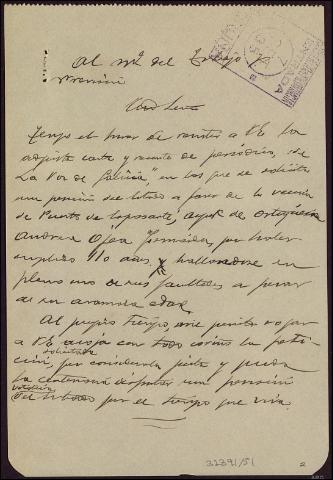 Al Mº del Trabajo y
Previsión
ENTRADA
Tengo el honor de remitir a VE la
adjunta carta y recorte de periódico, de
"La Voz de Galicia", en los que se solicita
una pensión del Estado a favor de la vecina
de Puente de, aquí de Ortigueira
Andrea Ojea, por haber
cumplido 110 años, y hallándose en
pleno uso de sus facultades a pesar
de su avanzada edad.
Al propio tiempo, me permito rogar
a VE acoja con todo cariño la peti-
solicitada
ción, por considerarla justa y pueda
la centenaria disfrutar una pensión
vitalicia
del Estado por el tiempo que viva.
32391/51
2